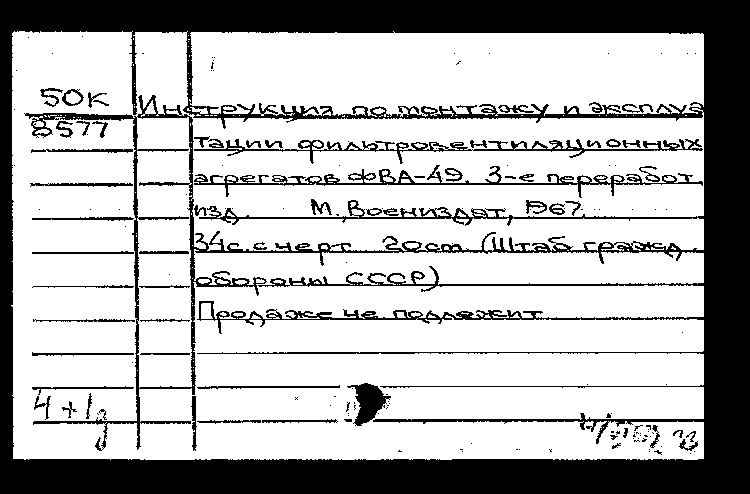 50К
8577
Инструкция по монтажу и эксплуа
тации фильтровентиляционных
агрегатов ФВА-49. 3-е переработ.
изд. М., Воениздат, 1967.
34с. с черт. 20см. (Штаб гражд.
обороны СССР)
Продаже не подлежит
4+1д